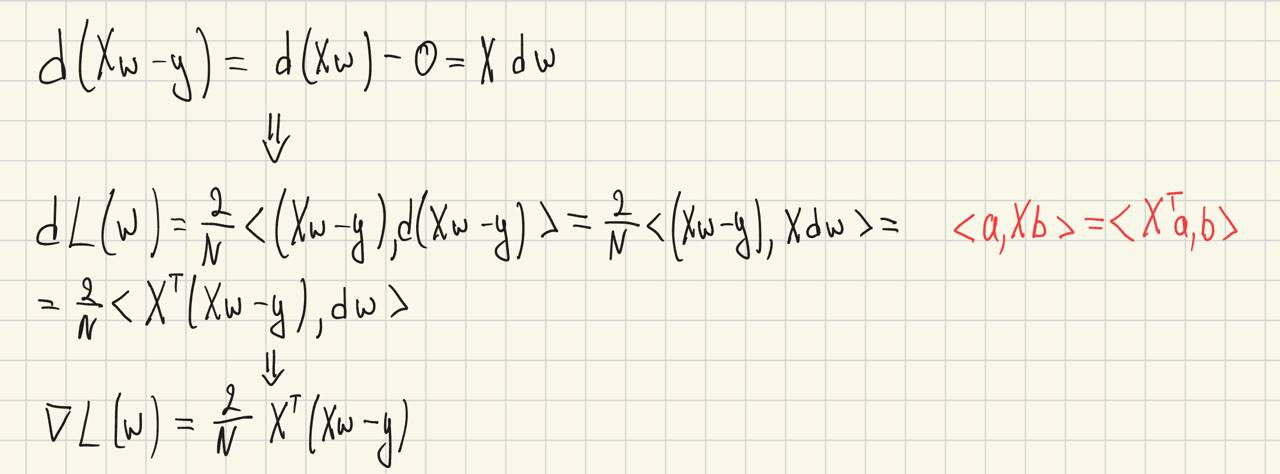 d(Xw-y) = d(Xw) - 0 = X dw
⇓
dL(w) = 2/N <(Xw-y), d(Xw-y)> = 2/N <(Xw-y), Xdw> = <a, Xb> = <Xᵀa, b>
= 2/N <Xᵀ(Xw-y), dw>
⇓
∇L(w) = 2/N Xᵀ(Xw-y)